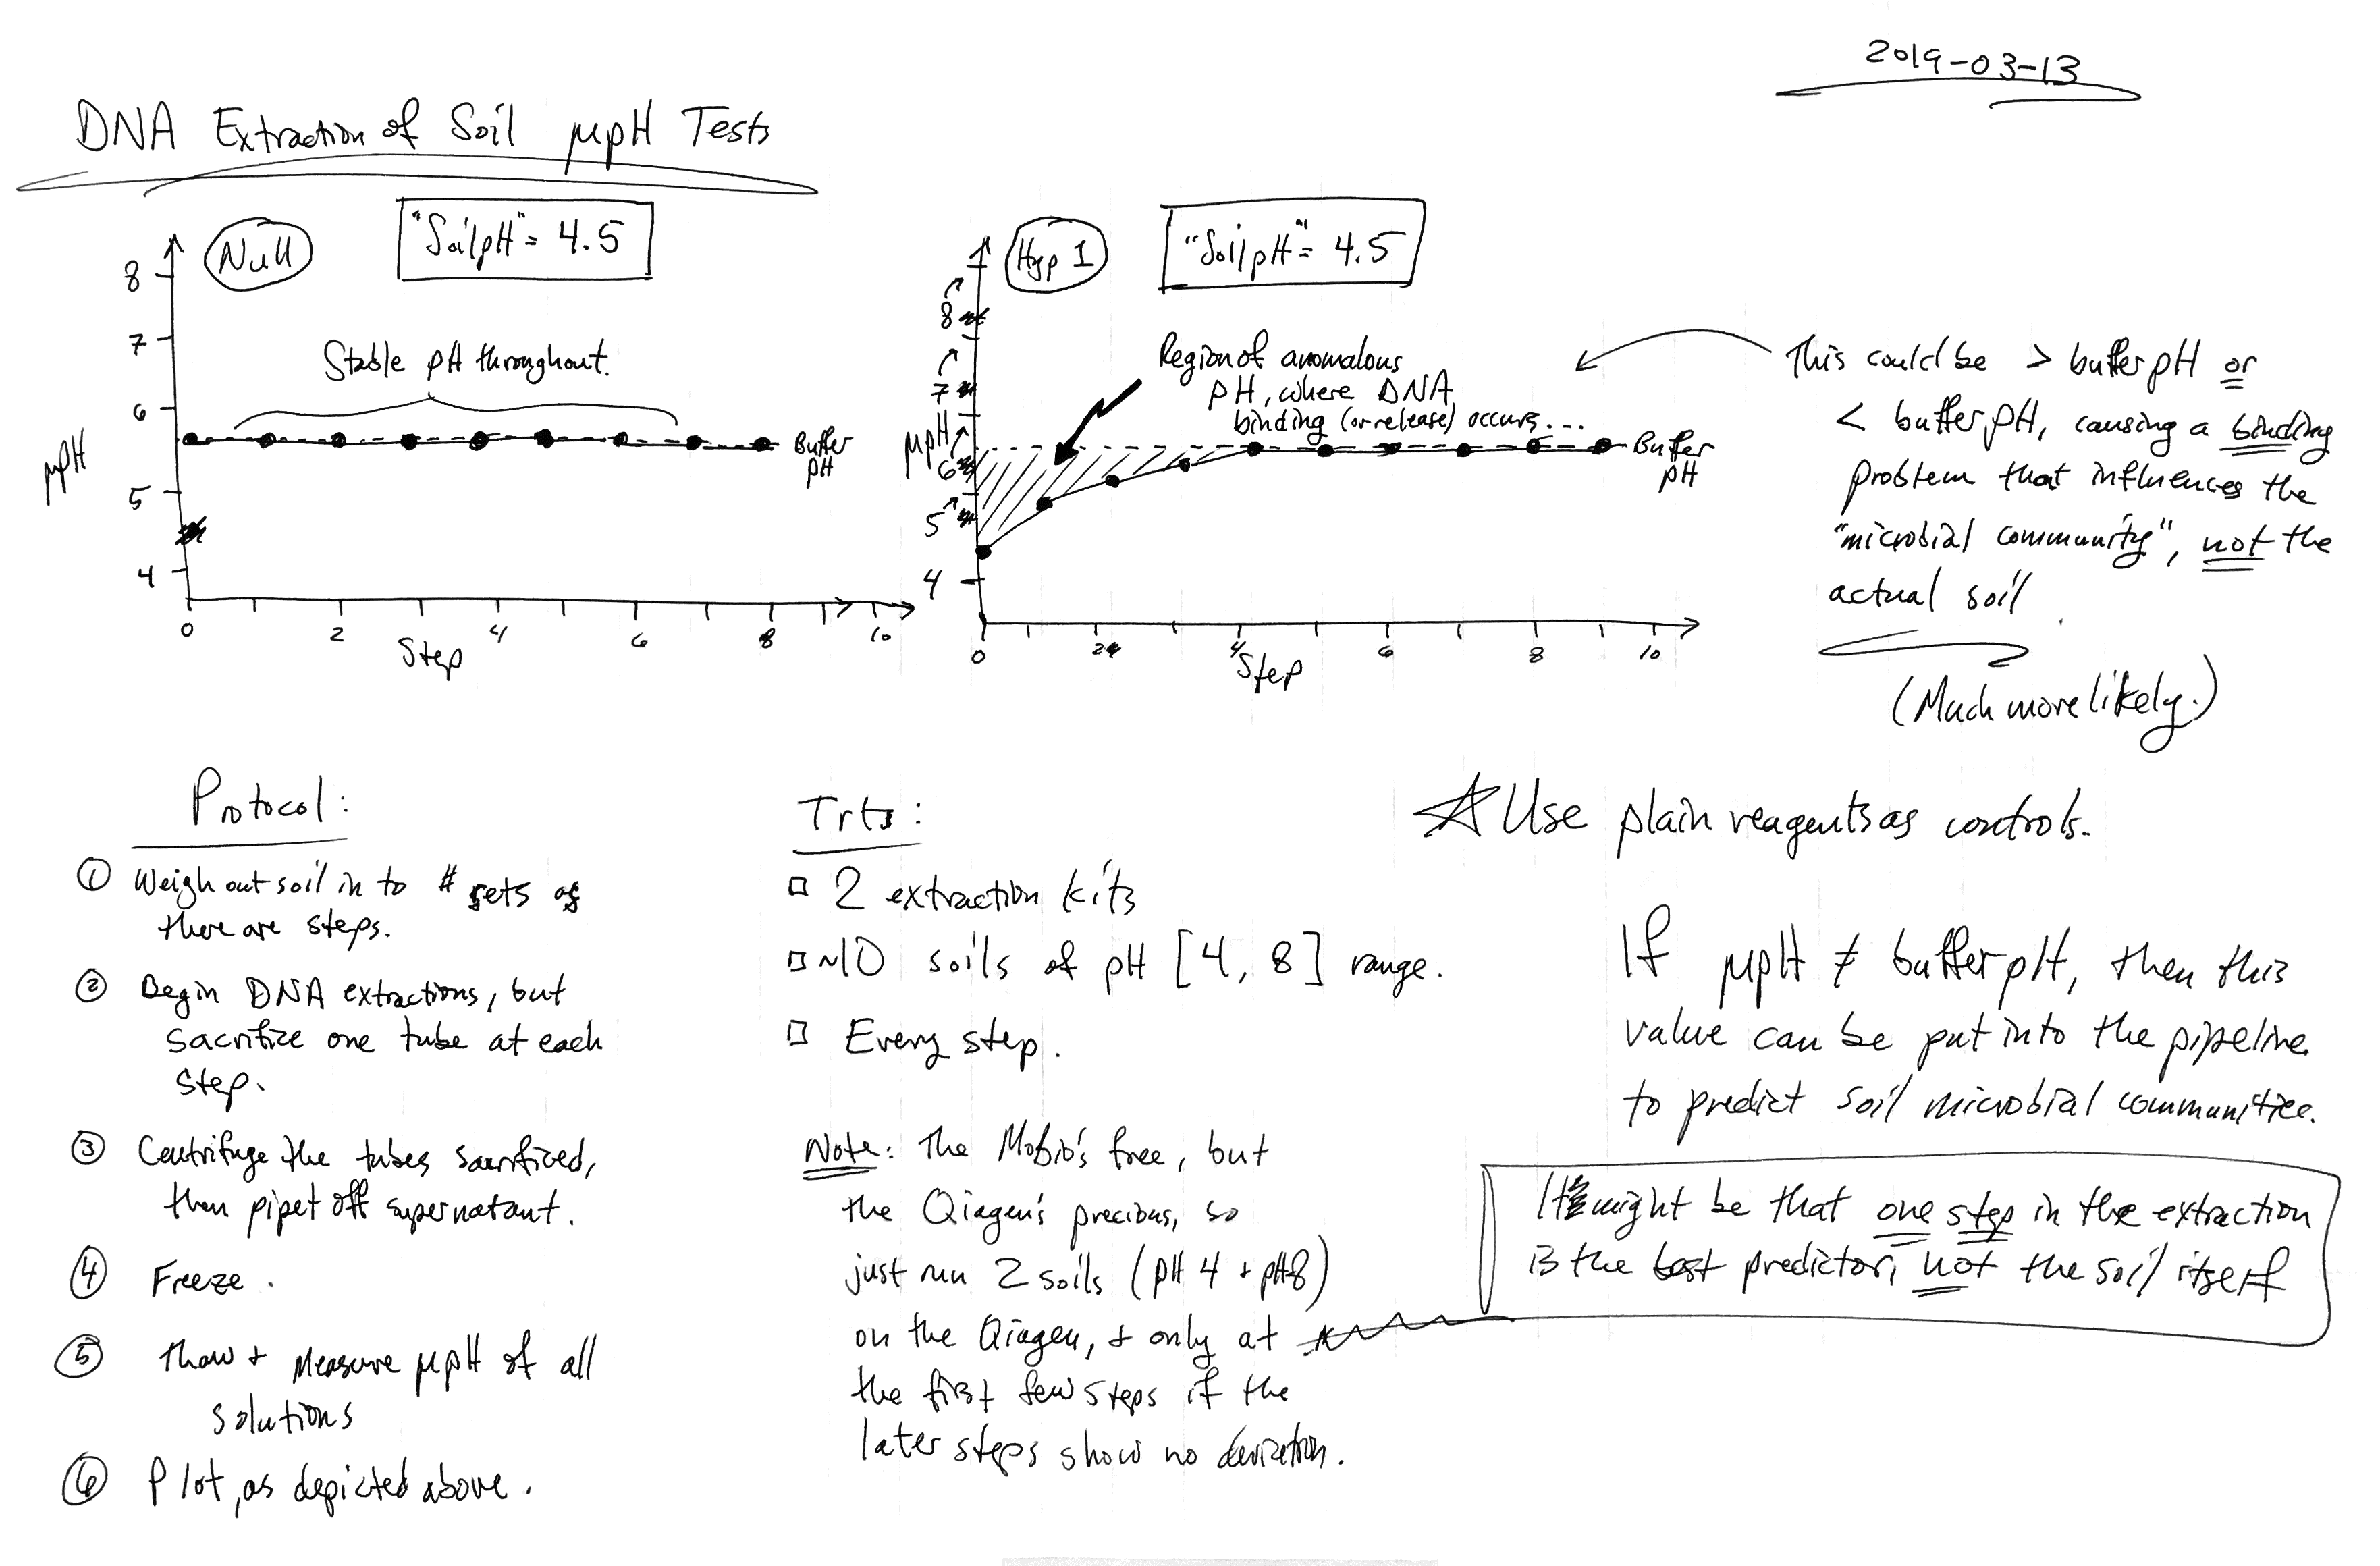 2019-03-13
DNA Extraction of Soil µpH Tests
Null
"Soil pH" = 4.5
8
7
6
5
4
µpH
Stable pH throughout.
Buffer
pH
0
2
4
6
8
10
Step
Hyp 1
"Soil pH" = 4.5
8
7
µpH
6
5
4
Region of anomalous
pH, where DNA
binding (or release) occurs...
Buffer
pH
0
2
4
6
8
10
Step
This could be > buffer pH or
< buffer pH, causing a binding
problem that influences the
"microbial community", not the
actual soil
(Much more likely.)
Protocol:
① Weigh out soil in to # sets as
there are steps.
② Begin DNA extractions, but
sacrifice one tube at each
step.
③ Centrifuge the tubes sacrificed,
then pipet off supernatant.
④ Freeze.
⑤ Thaw + measure µpH of all
solutions
⑥ Plot, as depicted above.
Trts:
□ 2 extraction kits
□ ~10 soils of pH [4, 8] range.
□ Every step.
Note: The Mobio's free, but
the Qiagen's precious, so
just run 2 soils (pH 4 + pH 8)
on the Qiagen, + only at
the first few steps if the
later steps show no deviation.
☆ Use plain reagents as controls.
If µpH ≠ buffer pH, then this
value can be put into the pipeline
to predict soil microbial communities.
It might be that one step in the extraction
is the best predictor, not the soil itself